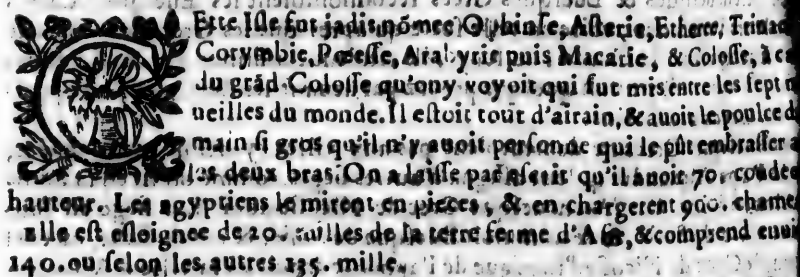 CEste Isle fut jadis nõmee Ophiuse, Asterie, Etheree, Trinac
Corymbie, Poeesse, Atabyrie puis Macarie, & Colosse, à ca
du grãd Colosse qu'on y voyoit qui fut mis entre les sept m
ueilles du monde. Il estoit tout d'airain, & auoit le poulce d
main si gros qu'il n'y auoit personne qui le pût embrasser a
les deux bras. On a laisse par escrit qu'il auoit 70. coudee
hauteur. Les agyptiens le mirent en pieces, & en chargerent 900. chame
elle est esloignee de 20. milles de la terre ferme d'Asie, & comprend enui
140. ou selon les autres 135. mille.